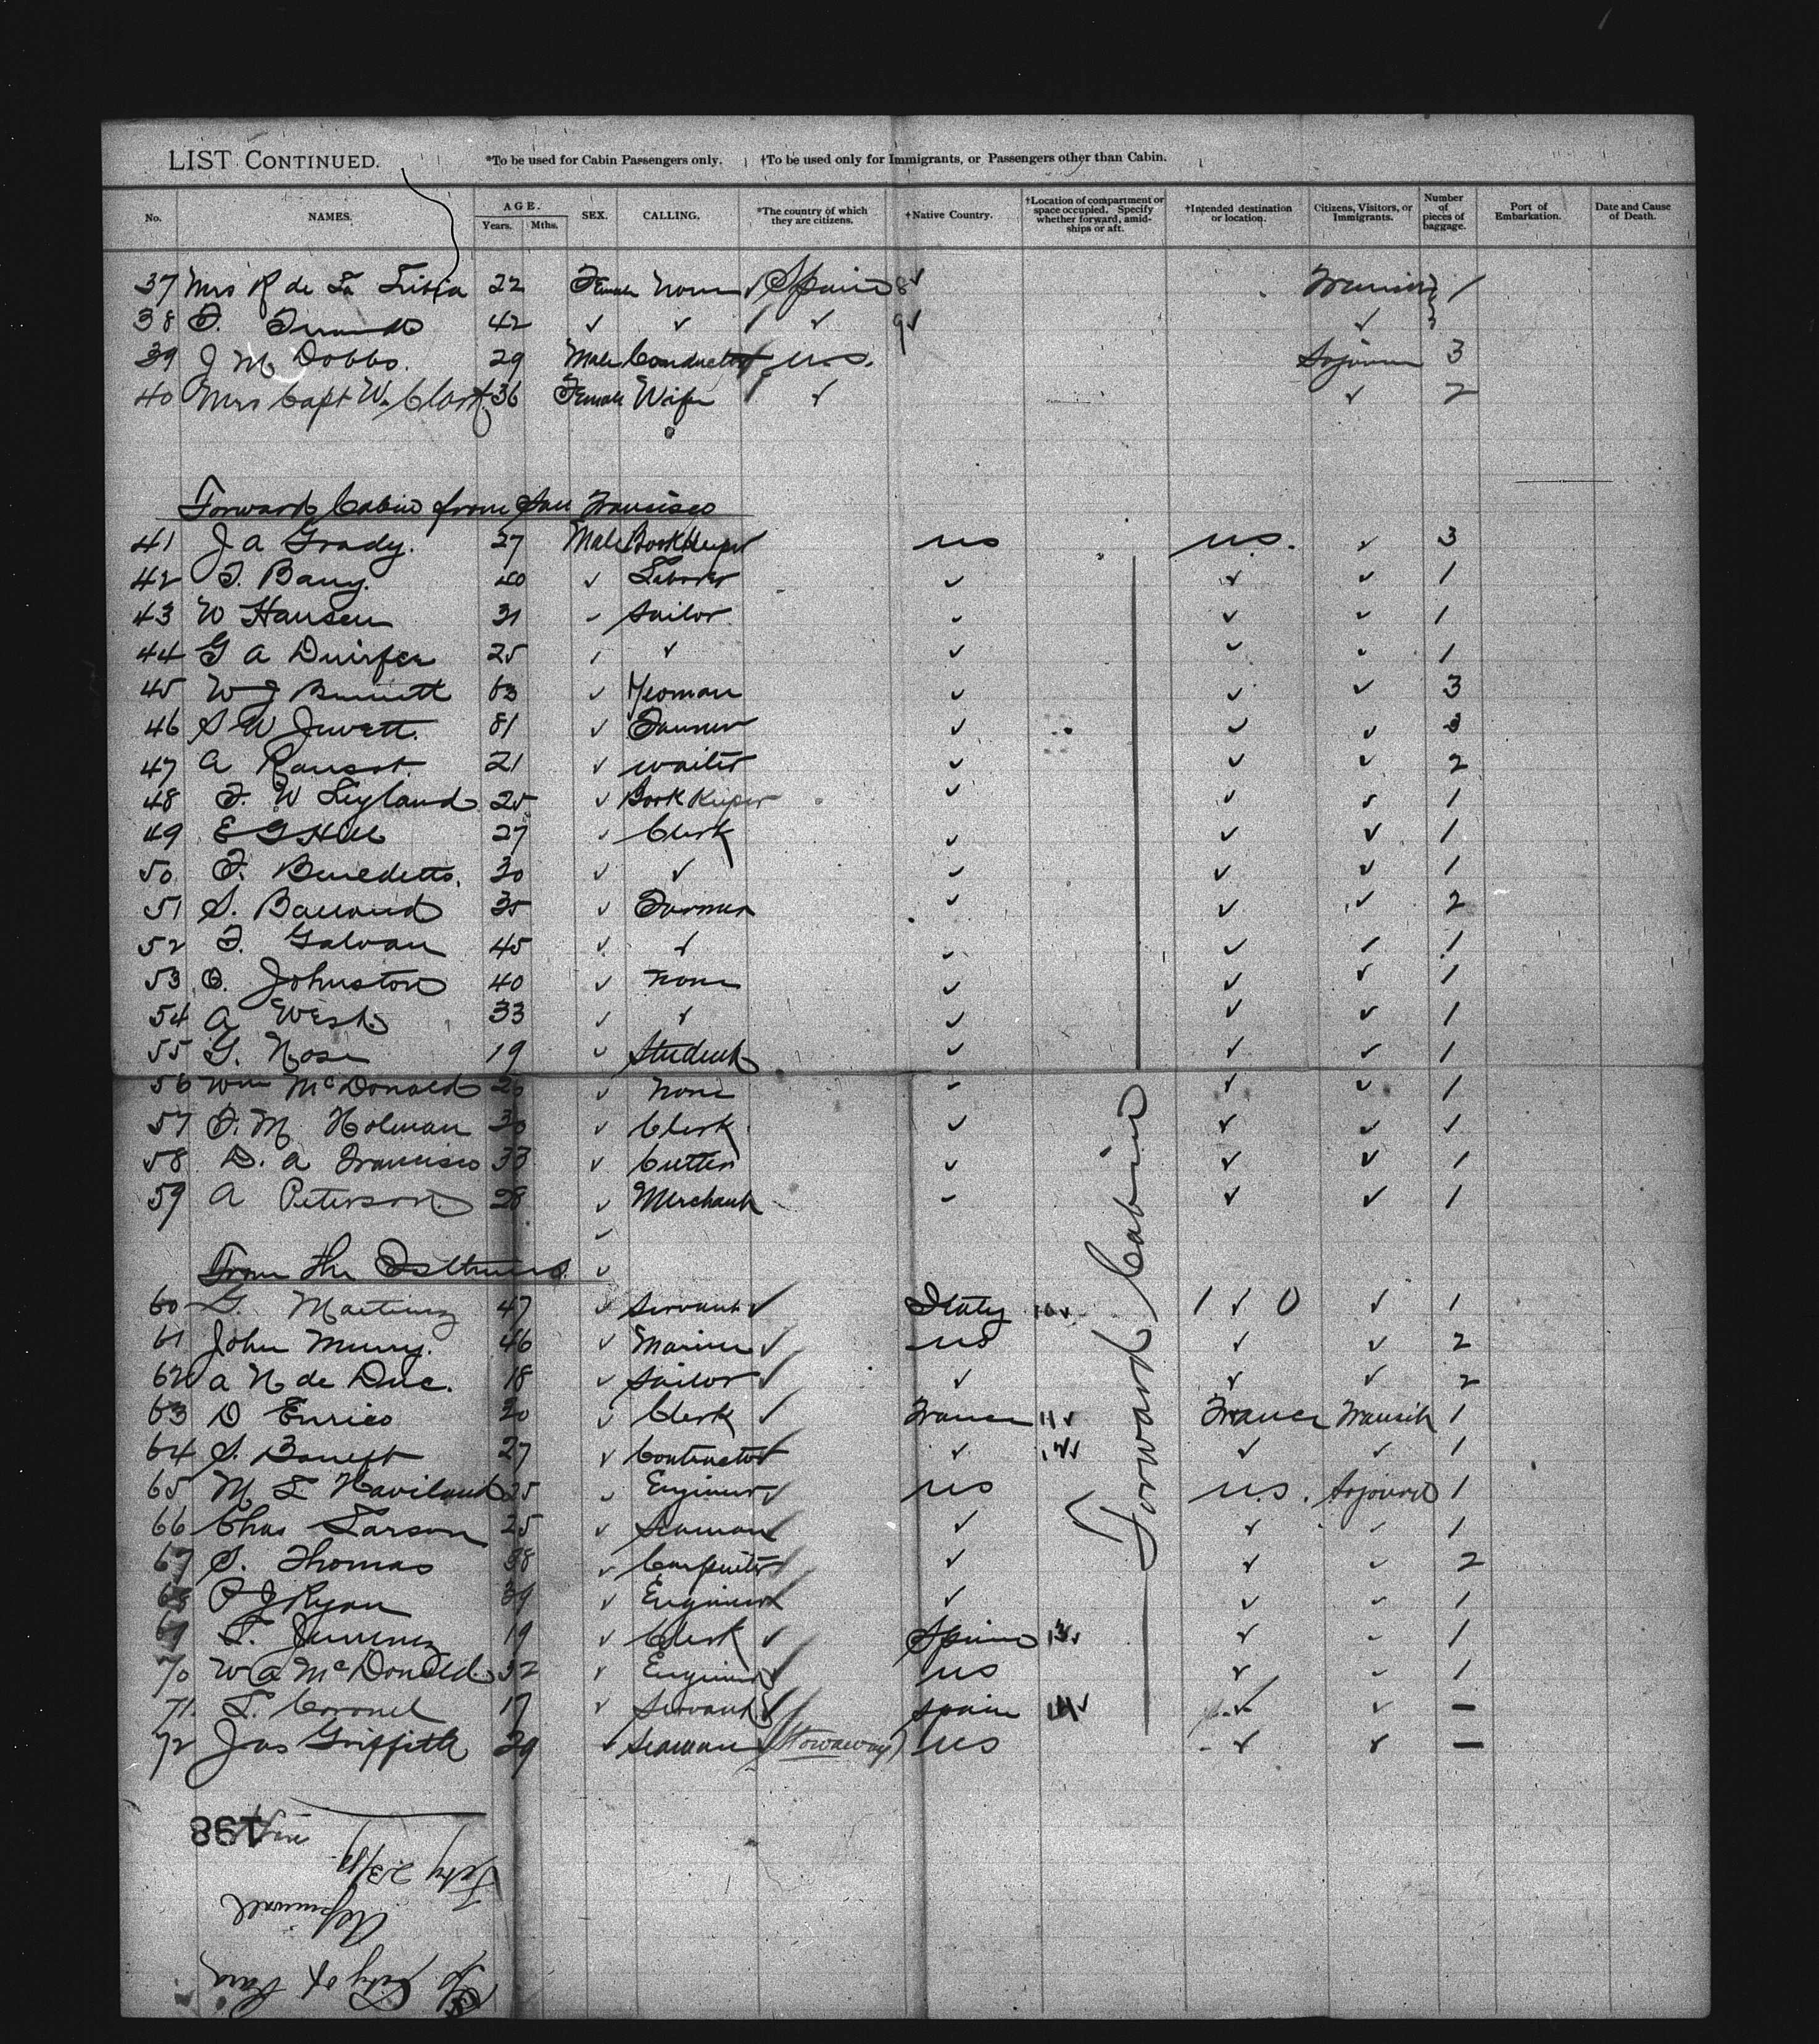 LIST CONTINUED. *To be used for Cabin Passengers only. †To be used only for Immigrants, or Passengers other than Cabin.
No. NAMES. AGE. Years. Mths. SEX. CALLING. *The country of which they are citizens. †Native Country. †Location of compartment or space occupied. Specify whether forward, amidships or aft. †Intended destination or location. Citizens, Visitors, or Immigrants. Number of pieces of baggage. Port of Embarkation. Date and Cause of Death.
37 Mrs R de La 22 Female None ✓ Spain 8✓ Transit 1
38 F. 42 ✓ ✓ ✓ 9✓ ✓
39 J M Dobbs. 29 Male Conductor U.S. Sojourn 3
40 Mrs Capt W. Clark 36 Female Wife ✓ ✓ 2
Forward Cabin from San Francisco
41 J A Grady. 27 Male BookKeeper US U.S. ✓ 3
42 F. Barry. 40 ✓ Laborer ✓ ✓ ✓ 1
43 W Hansen 31 ✓ Sailor ✓ ✓ ✓ 1
44 G A 25 ✓ ✓ ✓ ✓ ✓ 1
45 W J Burnett 63 ✓ Yeoman ✓ ✓ ✓ 3
46 S W Jewett. 81 ✓ Farmer ✓ ✓ ✓ 3
47 A 21 ✓ waiter ✓ ✓ ✓ 2
48 F. W Leyland 25 ✓ Book Keeper ✓ ✓ ✓ 1
49 E G Hill 27 ✓ Clerk ✓ ✓ ✓ 1
50 F. Benedetto. 30 ✓ ✓ ✓ ✓ ✓ 1
51 S. 35 ✓ Farmer ✓ ✓ ✓ 2
52 F. Galvan 45 ✓ ✓ ✓ ✓ ✓ 1
53 O. Johnston 40 ✓ None ✓ ✓ ✓ 1
54 A West 33 ✓ ✓ ✓ ✓ ✓ 1
55 G. 19 ✓ Student ✓ ✓ ✓ 1
56 Wm McDonald 20 ✓ None ✓ ✓ ✓ 1
57 F. M. Holman 30 ✓ Clerk ✓ ✓ ✓ 1
58 D. A Francisco 33 ✓ Cutter ✓ ✓ ✓ 1
59 A Peterson 28 ✓ Merchant ✓ ✓ ✓ 1
✓
From the Isthmus ✓
60 G. Martinez 47 ✓ Servant ✓ Italy 10✓ 1 ✓ 0 ✓ 1
61 John Murry. 46 ✓ Mariner ✓ US ✓ ✓ 2
62 A N de Duc. 18 ✓ Sailor ✓ ✓ ✓ ✓ 2
63 D Enrico 20 ✓ Clerk ✓ France 11✓ France Transit 1
64 S. 27 ✓ Contractor ✓ ✓ 12✓ ✓ ✓ 1
65 M L Haviland 25 ✓ Engineer ✓ US U.S. Sojourn 1
66 Chas Larson 25 ✓ Seaman ✓ ✓ ✓ ✓ 1
67 S. Thomas 38 ✓ Carpenter ✓ ✓ ✓ ✓ 2
68 P J Ryan 39 ✓ Engineer ✓ ✓ ✓ ✓ 1
69 L. Jimenez 19 ✓ Clerk ✓ Spain 13✓ ✓ ✓ 1
70 W A McDonald 32 ✓ Engineer ✓ US ✓ ✓ 1
71. L. Coronel 17 ✓ Servant ✓ Spain 14✓ ✓ ✓ —
72 Jas Griffith 29 ✓ Seaman (Stowaway) US ✓ ✓ —
Forward Cabin
198
Feby 23/
Aspinwall
SS City of Para